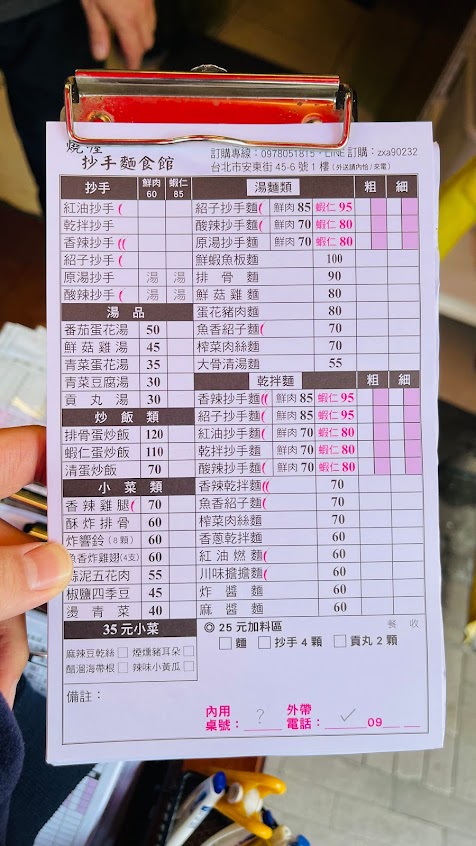 燒惺
抄手麵食館
訂購專線：0978051815，LINE 訂購：zxa90232
台北市安東街 45-6 號 1 樓 (外送請內恰 / 來電)
抄手 鮮肉 60 蝦仁 85
紅油抄手(
乾拌抄手
香辣抄手((
紹子抄手(
原湯抄手 湯 湯
酸辣抄手( 湯 湯
湯品
番茄蛋花湯 50
鮮菇雞湯 45
青菜蛋花湯 35
青菜豆腐湯 30
貢丸湯 30
炒飯類
排骨蛋炒飯 120
蝦仁蛋炒飯 110
清蛋炒飯 70
小菜類
香辣雞腿( 70
酥炸排骨 60
炸響鈴(8顆) 60
魚香炸雞翅(4支) 60
蒜泥五花肉 55
椒鹽四季豆 45
燙青菜 40
35 元小菜
麻辣豆乾絲 煙燻豬耳朵
醋溜海帶根 辣味小黃瓜
湯麵類 粗 細
紹子抄手麵( 鮮肉 85 蝦仁 95
酸辣抄手麵( 鮮肉 70 蝦仁 80
原湯抄手麵 鮮肉 70 蝦仁 80
鮮蝦魚板麵 100
排骨麵 90
鮮菇雞麵 80
蛋花豬肉麵 80
魚香紹子麵( 70
榨菜肉絲麵 70
大骨清湯麵 55
乾拌麵 粗 細
香辣抄手麵(( 鮮肉 85 蝦仁 95
紹子抄手麵( 鮮肉 85 蝦仁 95
紅油抄手麵( 鮮肉 70 蝦仁 80
乾拌抄手麵 鮮肉 70 蝦仁 80
酸辣抄手麵( 鮮肉 70 蝦仁 80
香辣乾拌麵(( 70
魚香紹子麵( 70
榨菜肉絲麵 70
香蔥乾拌麵 60
紅油燃麵( 60
川味擔擔麵( 60
炸醬麵 60
麻醬麵 60
◎ 25 元加料區 餐 收
麵 抄手 4 顆 貢丸 2 顆
備註：
內用 外帶
桌號：? 電話：✓ 09